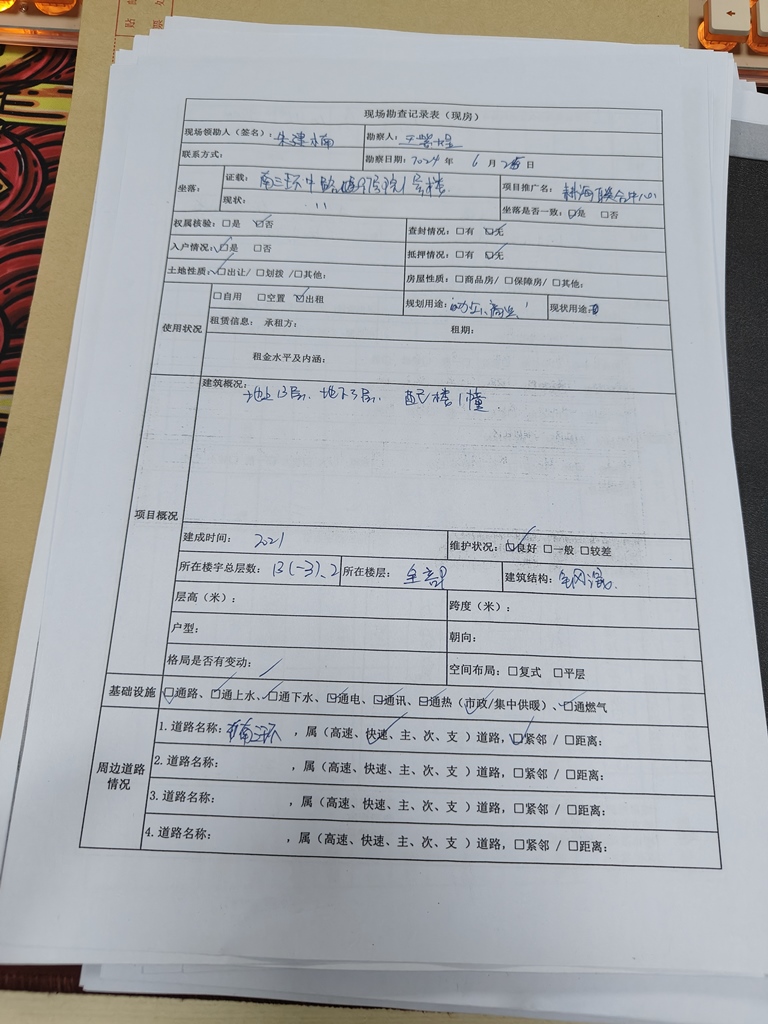 现场勘查记录表（现房）
现场领勘人（签名）： 勘察人：
联系方式： 勘察日期：2024 年 6 月 25 日
坐落： 证载：南三环中路 号院1号楼 项目推广名： 中心
现状：〃 坐落是否一致：☑是 □否
权属核验：□是 ☑否 查封情况：□有 ☑无
入户情况：☑是 □否 抵押情况：□有 ☑无
土地性质：☑出让/ □划拨 /□其他： 房屋性质：□商品房/ □保障房/ □其他：
使用状况 □自用 □空置 ☑出租 规划用途：办公、商业 现状用途：
租赁信息： 承租方： 租期：
租金水平及内涵：
项目概况 建筑概况：
地上13层、地下3层、 配楼1幢
建成时间：2021 维护状况：☑良好 □一般 □较差
所在楼宇总层数：13(-3)、2 所在楼层：全部 建筑结构：钢混
层高（米）： 跨度（米）：
户型： 朝向：
格局是否有变动：/ 空间布局：□复式 □平层
基础设施 ☑通路、☑通上水、☑通下水、☑通电、☑通讯、☑通热（市政/集中供暖）、☑通燃气
周边道路情况 1.道路名称：南三环 ，属（高速、快速、主、次、支 ）道路，☑紧邻 / □距离：
2.道路名称： ，属（高速、快速、主、次、支 ）道路，□紧邻 / □距离：
3.道路名称： ，属（高速、快速、主、次、支 ）道路，□紧邻 / □距离：
4.道路名称： ，属（高速、快速、主、次、支 ）道路，□紧邻 / □距离：